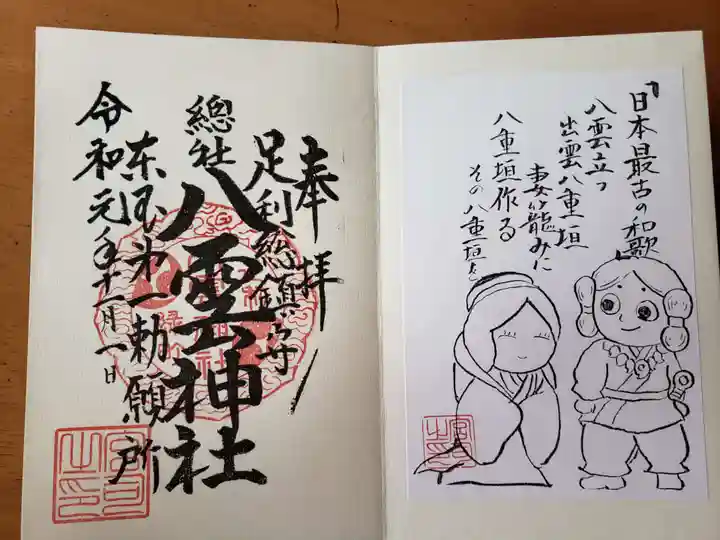 奉拝
足利総鎮守
總社
八雲神社
東国第一勅願所
令和元年十一月一日
宮司之印
『日本最古の和歌』
八雲立つ
出雲八重垣
妻籠みに
八重垣作る
その八重垣を